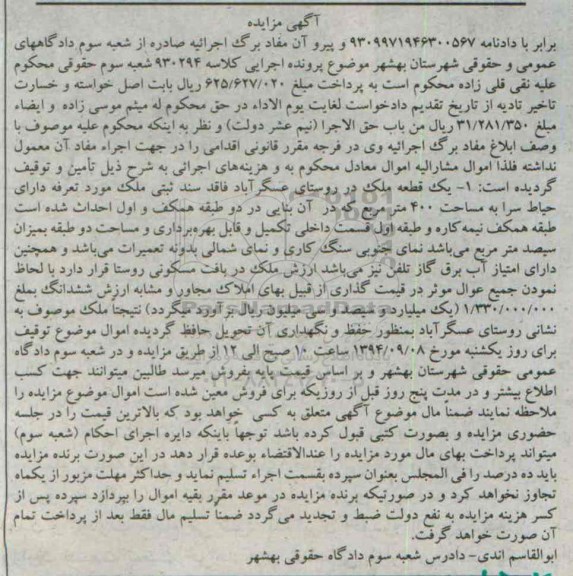 آگهی مزایده
برابر با دادنامه ۹۳۰۹۹۷۱۹۴۶۳۰۰۵۶۷ و پیرو آن مفاد برگ اجرائیه صادره از شعبه سوم دادگاههای
عمومی و حقوقی شهرستان بهشهر موضوع پرونده اجرایی کلاسه ۹۳۰۲۹۴ شعبه سوم حقوقی محکوم
علیه نقی قلی زاده محکوم است به پرداخت مبلغ ۶۲۵/۶۲۷/۰۲۰ ریال بابت اصل خواسته و خسارت
تاخیر تادیه از تاریخ تقدیم دادخواست لغایت یوم الاداء در حق محکوم له میثم موسی زاده و ایضاء
مبلغ ۳۱/۲۸۱/۳۵۰ ریال من باب حق الاجرا (نیم عشر دولت) و نظر به اینکه محکوم علیه موصوف با
وصف ابلاغ مفاد برگ اجرائیه وی در فرجه مقرر قانونی اقدامی را در جهت اجراء مفاد آن معمول
نداشته فلذا اموال مشارالیه اموال معادل محکوم به و هزینه‌های اجرائی به شرح ذیل تأمین و توقیف
گردیده است: ۱- یک قطعه ملک در روستای عسگرآباد فاقد سند ثبتی ملک مورد تعرفه دارای
حیاط سرا به مساحت ۴۰۰ متر مربع که در آن بنایی در دو طبقه همکف و اول احداث شده است
طبقه همکف نیمه کاره و طبقه اول قسمت داخلی تکمیل و قابل بهره‌برداری و مساحت دو طبقه بمیزان
سیصد متر مربع می‌باشد نمای جنوبی سنگ کاری و نمای شمالی بدونه تعمیرات می‌باشد و همچنین
دارای امتیاز آب برق گاز تلفن نیز می‌باشد ارزش ملک در بافت مسکونی روستا قرار دارد با لحاظ
نمودن جمیع عوال موثر در قیمت گذاری از قبیل بهای املاک مجاور و مشابه ارزش ششدانگ بمبلغ
۱/۳۳۰/۰۰۰/۰۰۰ (یک میلیارد و سیصد و سی میلیون ریال برآورد میگردد) نتیجتاً ملک موصوف به
نشانی روستای عسگرآباد بمنظور حفظ و نگهداری آن تحویل حافظ گردیده اموال موضوع توقیف
برای روز یکشنبه مورخ ۱۳۹۴/۰۹/۰۸ ساعت ۱۰ صبح الی ۱۲ از طریق مزایده و در شعبه سوم دادگاه
عمومی حقوقی شهرستان بهشهر و بر اساس قیمت پایه بفروش میرسد طالبین میتوانند جهت کسب
اطلاع بیشتر و در مدت پنج روز قبل از روزیکه برای فروش معین شده است اموال موضوع مزایده را
ملاحظه نمایند ضمناً مال موضوع آگهی متعلق به کسی خواهد بود که بالاترین قیمت را در جلسه
حضوری مزایده و بصورت کتبی قبول کرده باشد توجهاً باینکه دایره اجرای احکام (شعبه سوم)
میتواند پرداخت بهای مال مورد مزایده را عندالاقتضاء بوعده قرار دهد در این صورت برنده مزایده
باید ده درصد را فی المجلس بعنوان سپرده بقسمت اجراء تسلیم نماید و حداکثر مهلت مزبور از یکماه
تجاوز نخواهد کرد و در صورتیکه برنده مزایده در موعد مقرر بقیه اموال را بپردازد سپرده پس از
کسر هزینه مزایده به نفع دولت ضبط و تجدید می‌گردد ضمناً تسلیم مال فقط بعد از پرداخت تمام
آن صورت خواهد گرفت.
ابوالقاسم اندی- دادرس شعبه سوم دادگاه حقوقی بهشهر